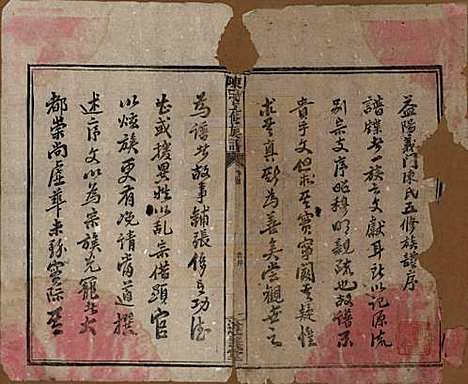 益陽義門陳氏五修族譜序
譜牒者一族之文獻耳所以記源流
別宗支序昭穆明親疏也故譜不
貴乎文但求其實寧闕其疑惟
求其真卽為善矣嘗觀世之
陳氏五修族譜
為譜者故事鋪張侈言功德
甚或援異姓以亂宗借顯宦
以炫族更有浼請當道撰
述序文以為宗族光寵者大
都崇尚虛華未務實際